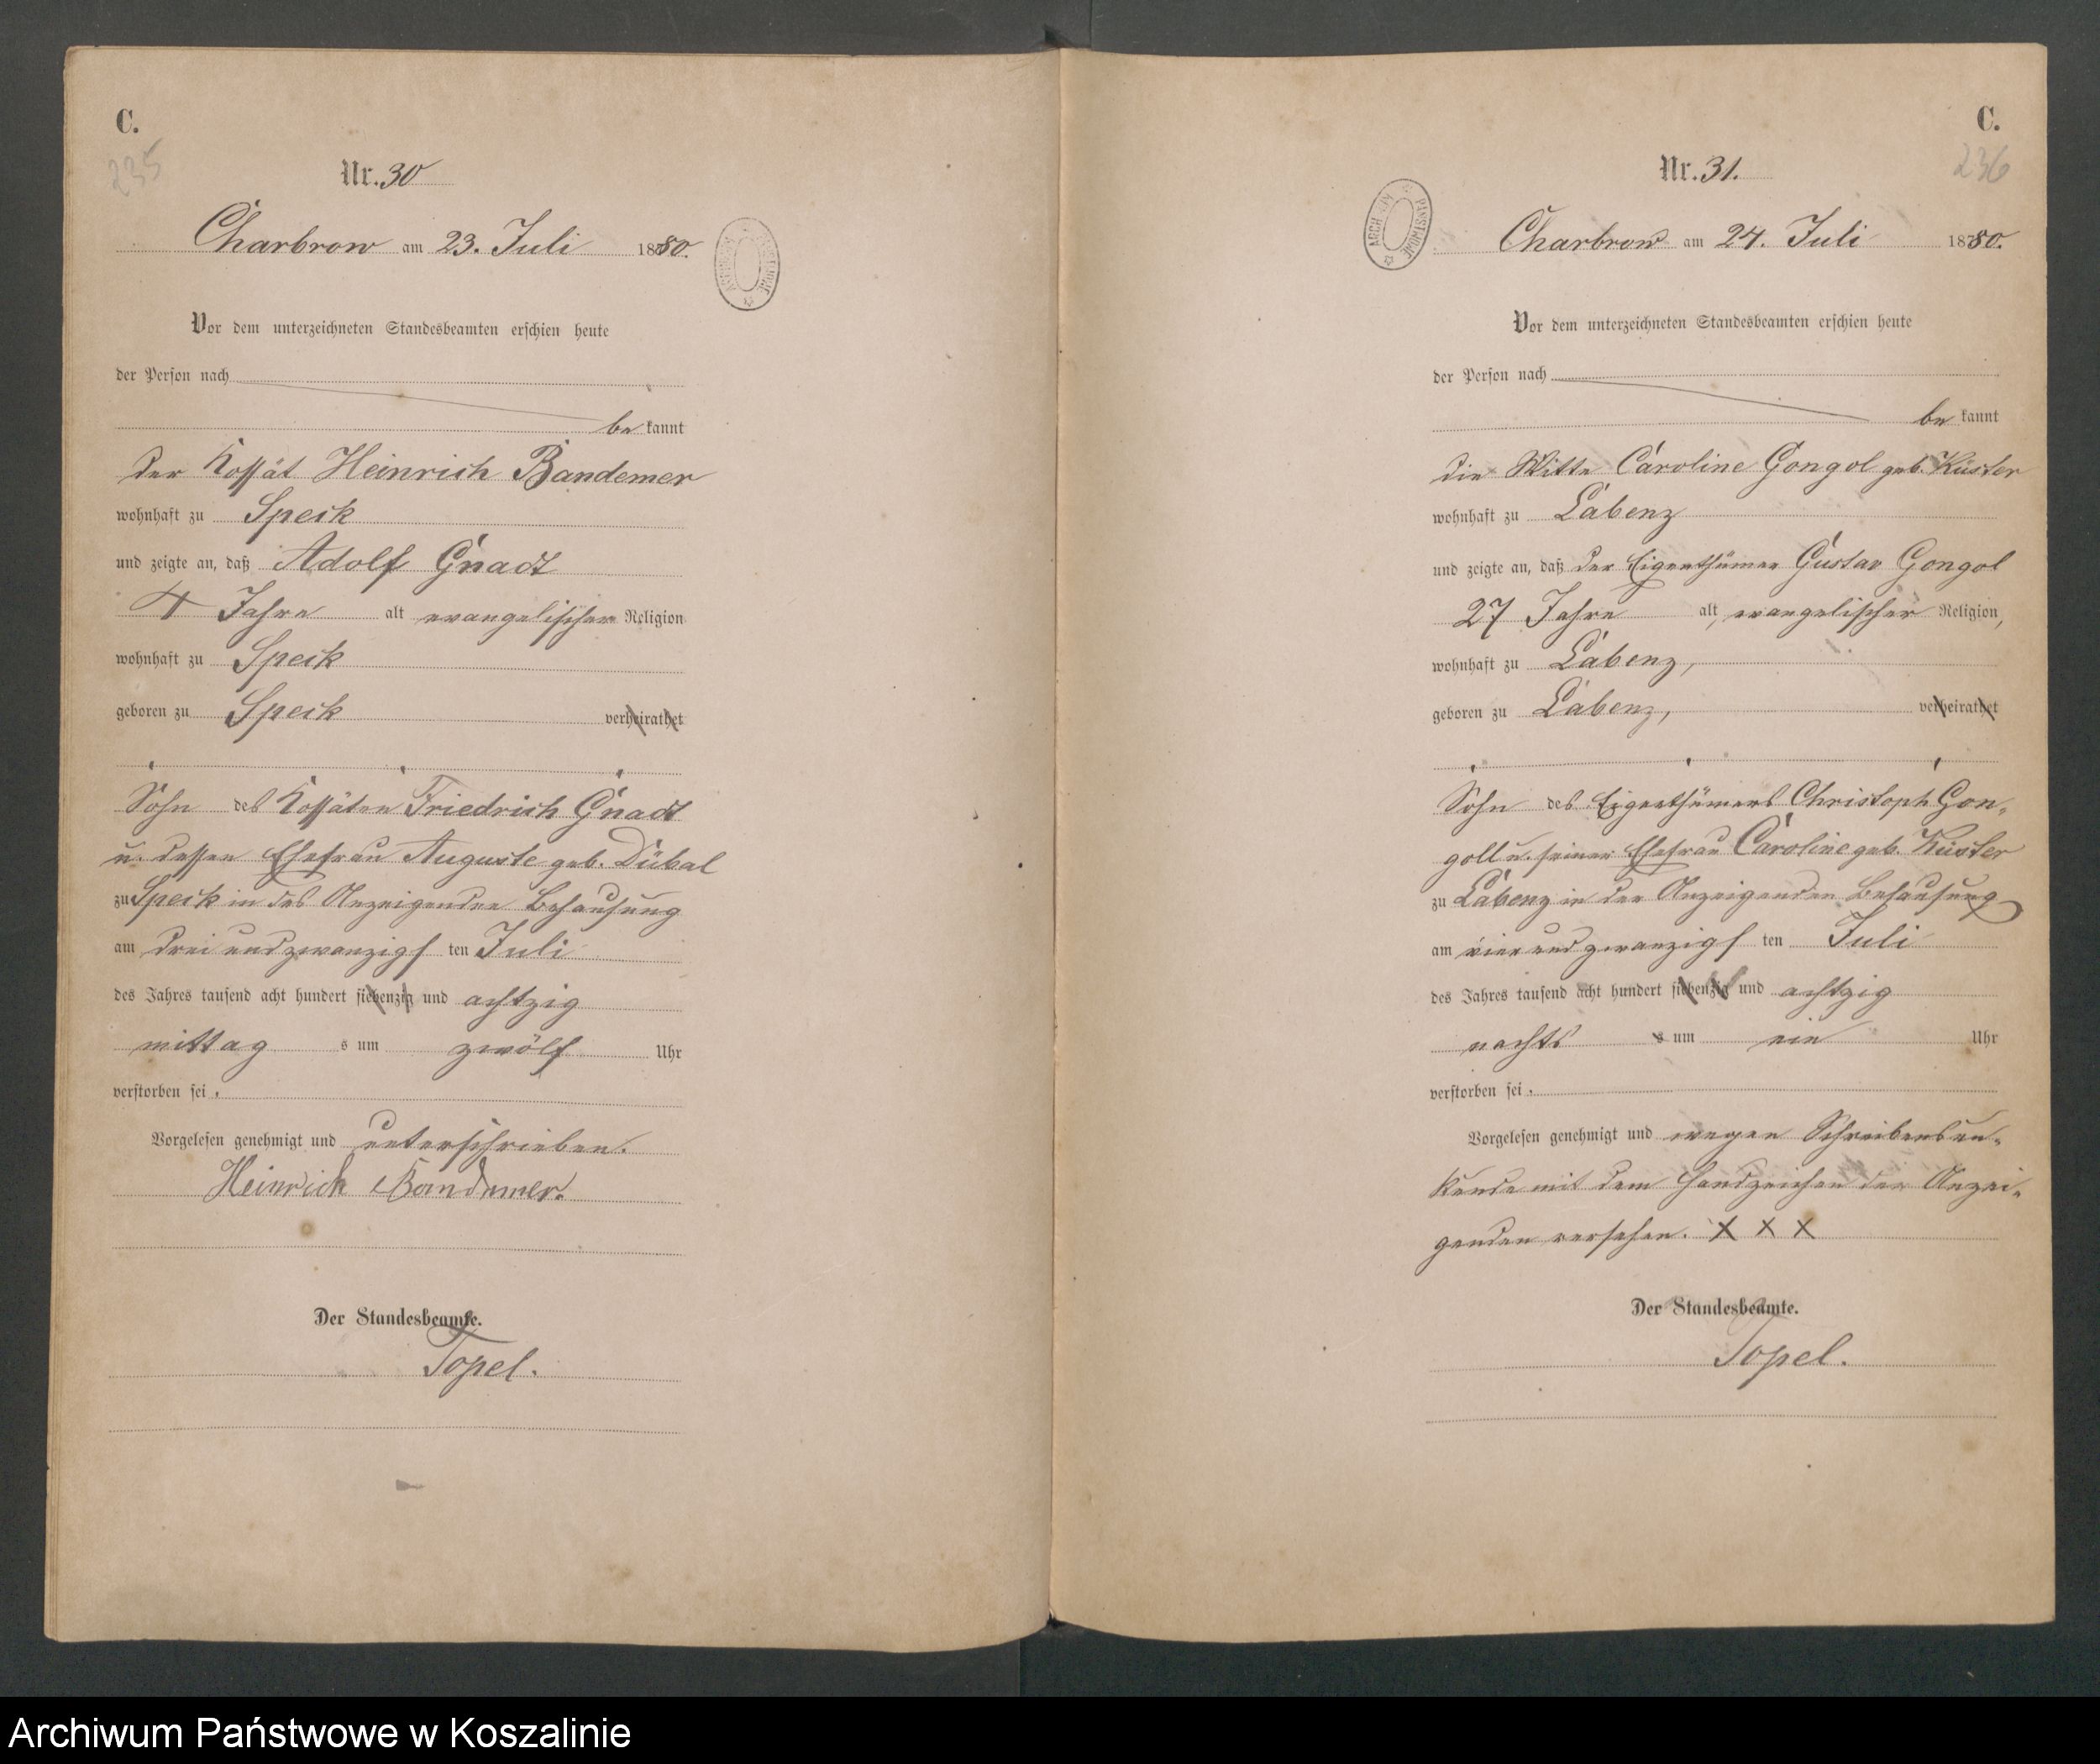 C.
235
Nr. 30
Charbrow am 23. Juli 1880.
Vor dem unterzeichneten Standesbeamten erschien heute
der Person nach
be kannt
der Kossät Heinrich Bandemer
wohnhaft zu Speck
und zeigte an, daß Adolf Gnadt
4 Jahre alt evangelischer Religion
wohnhaft zu Speck
geboren zu Speck verheirathet
Sohn des Kossäten Friedrich Gnadt
u. dessen Ehefrau Auguste geb. Dübal
zu Speck in des Anzeigenden Behausung
am drei und zwanzigs ten Juli
des Jahres tausend acht hundert siebenzig und achtzig
mittag s um zwölf Uhr
verstorben sei.
Vorgelesen genehmigt und unterschrieben.
Heinrich Bandemer.
Der Standesbeamte.
Topel.
C.
236
Nr. 31.
Charbrow am 24. Juli 1880.
Vor dem unterzeichneten Standesbeamten erschien heute
der Person nach
be kannt
die Caroline Gongol geb. Küster
wohnhaft zu Labenz
und zeigte an, daß der Eigenthümer Gustav Gongol
27 Jahre alt, evangelischer Religion,
wohnhaft zu Labenz,
geboren zu Labenz, verheirathet
Sohn des Eigenthümers Christoph Gon-
goll u. seiner Ehefrau Caroline geb. Küster
zu Labenz in der Anzeigenden Behausung
am vier und zwanzigs ten Juli
des Jahres tausend acht hundert siebenzig und achtzig
nachts s um ein Uhr
verstorben sei.
Vorgelesen genehmigt und wegen Schreibensun-
kunde mit dem Handzeichen der Anzei-
genden versehen. X X X
Der Standesbeamte.
Topel.
Archiwum Państwowe w Koszalinie